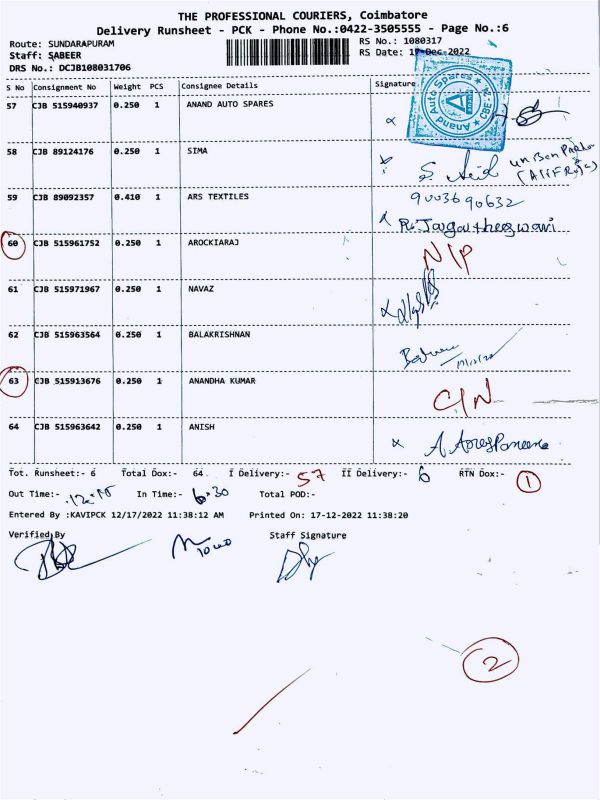 THE PROFESSIONAL COURIERS, Coimbatore
Delivery Runsheet - PCK - Phone No.:0422-3505555 - Page No.:6
Route: SUNDARAPURAM RS No.: 1080317
Staff: SABEER RS Date: 17-Dec-2022
DRS No.: DCJB108031706
S No Consignment No Weight PCS Consignee Details Signature
57 CJB 515940937 0.250 1 ANAND AUTO SPARES
Anand Auto Spares CBE-
58 CJB 89124176 0.250 1 SIMA
59 CJB 89092357 0.410 1 ARS TEXTILES 9003690632
R. Jagatheeswari
60 CJB 515961752 0.250 1 AROCKIARAJ N/P
61 CJB 515971967 0.250 1 NAVAZ
62 CJB 515963564 0.250 1 BALAKRISHNAN
63 CJB 515913676 0.250 1 ANANDHA KUMAR C/N
64 CJB 515963642 0.250 1 ANISH
Tot. Runsheet:- 6 Total Dox:- 64 I Delivery:- 57 II Delivery:- 6 RTN Dox:- 1
Out Time:- In Time:- 6.30 Total POD:-
Entered By :KAVIPCK 12/17/2022 11:38:12 AM Printed On: 17-12-2022 11:38:20
Verified By Staff Signature
2